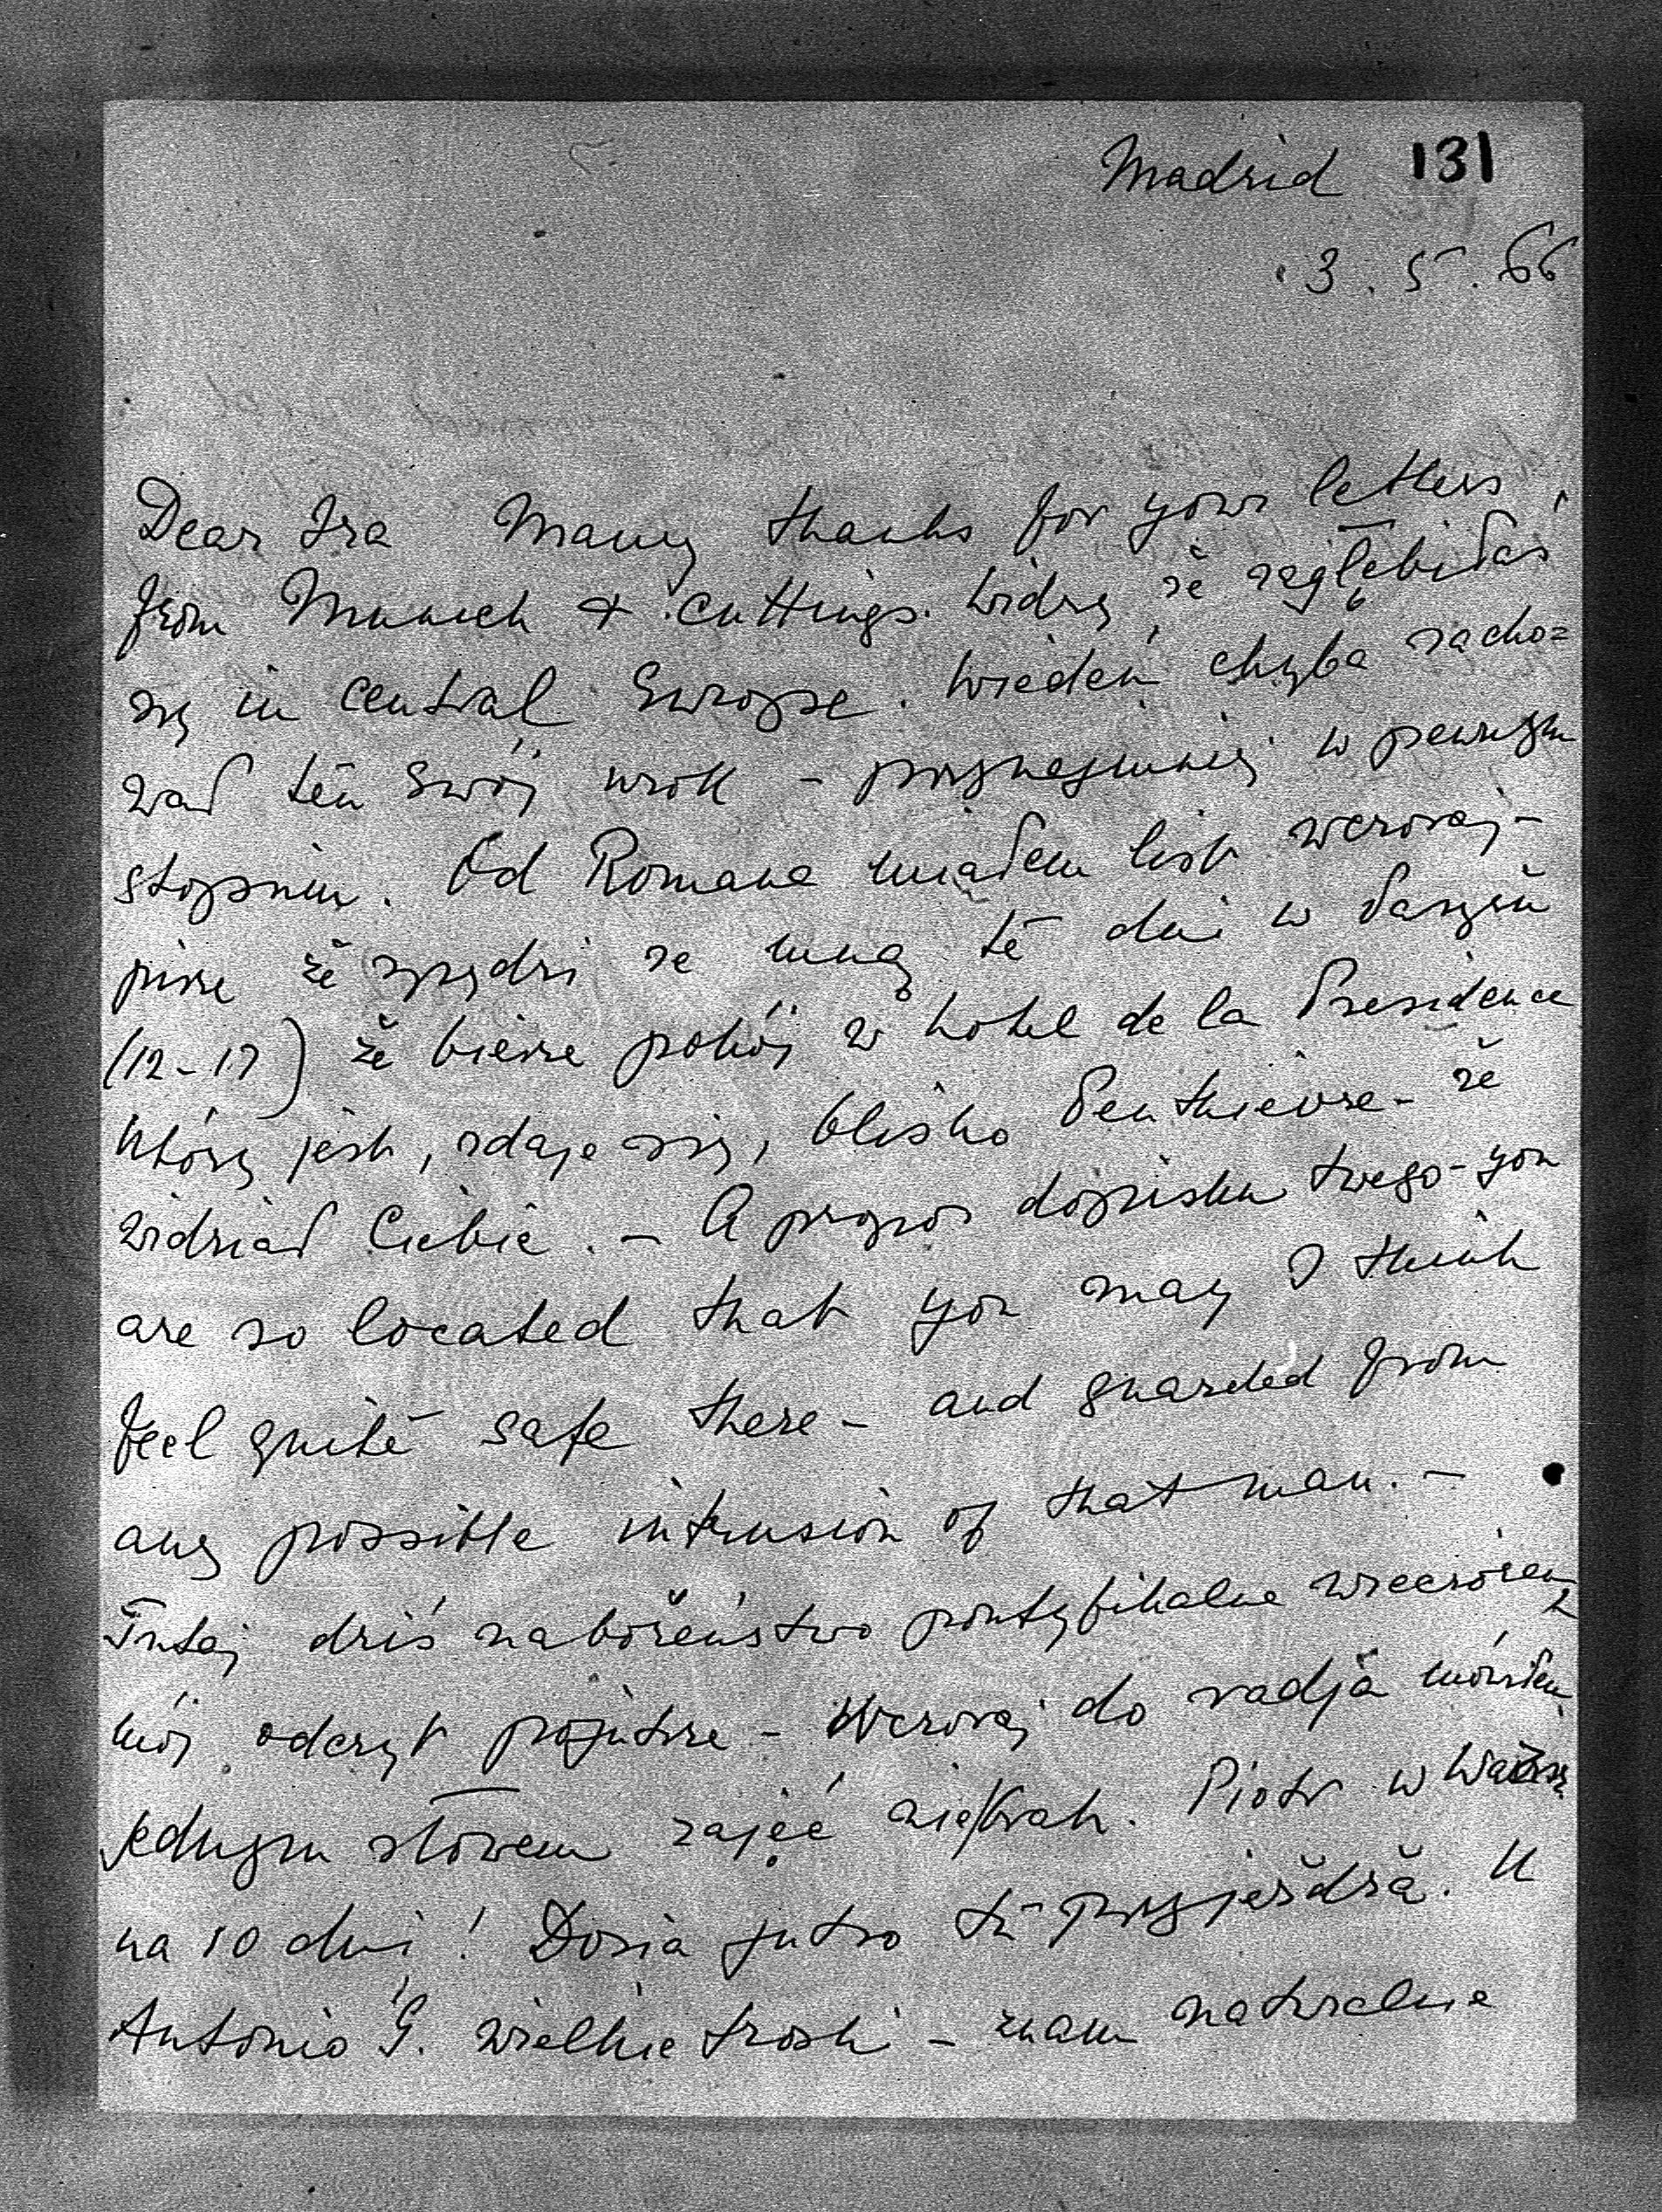 Madrid 131
3.5.66
Dear Ira Many thanks for your letters,
from Munich + cuttings. Widzę, że zagłębiłaś
się in central Europe. Wiedeń chyba zacho=
wał ten swój urok - przynajmniej w pewnym
stopniu. Od Romana miałem list wczoraj -
pisze że spędzi ze mną te dni w Paryżu
(12-17) że bierze pokój w hotel de la Presidence
który jest, zdaje się, blisko Penthievre - że
widział Ciebie. - A propos dopisku twego - you
are so located that you may I think
feel quite safe there - and guarded from
any possible intrusion of that man. -
Tutaj dziś nabożeństwo pontyfikalne wieczorem,
mój odczyt pojutrze - Wczoraj do radja mówiłem
jednym słowem zajęć nie brak. Piotr w
na 10 dni! Dosia jutro tu przyjeżdża. U
Antonio G. wielkie troski - znam naturalnie